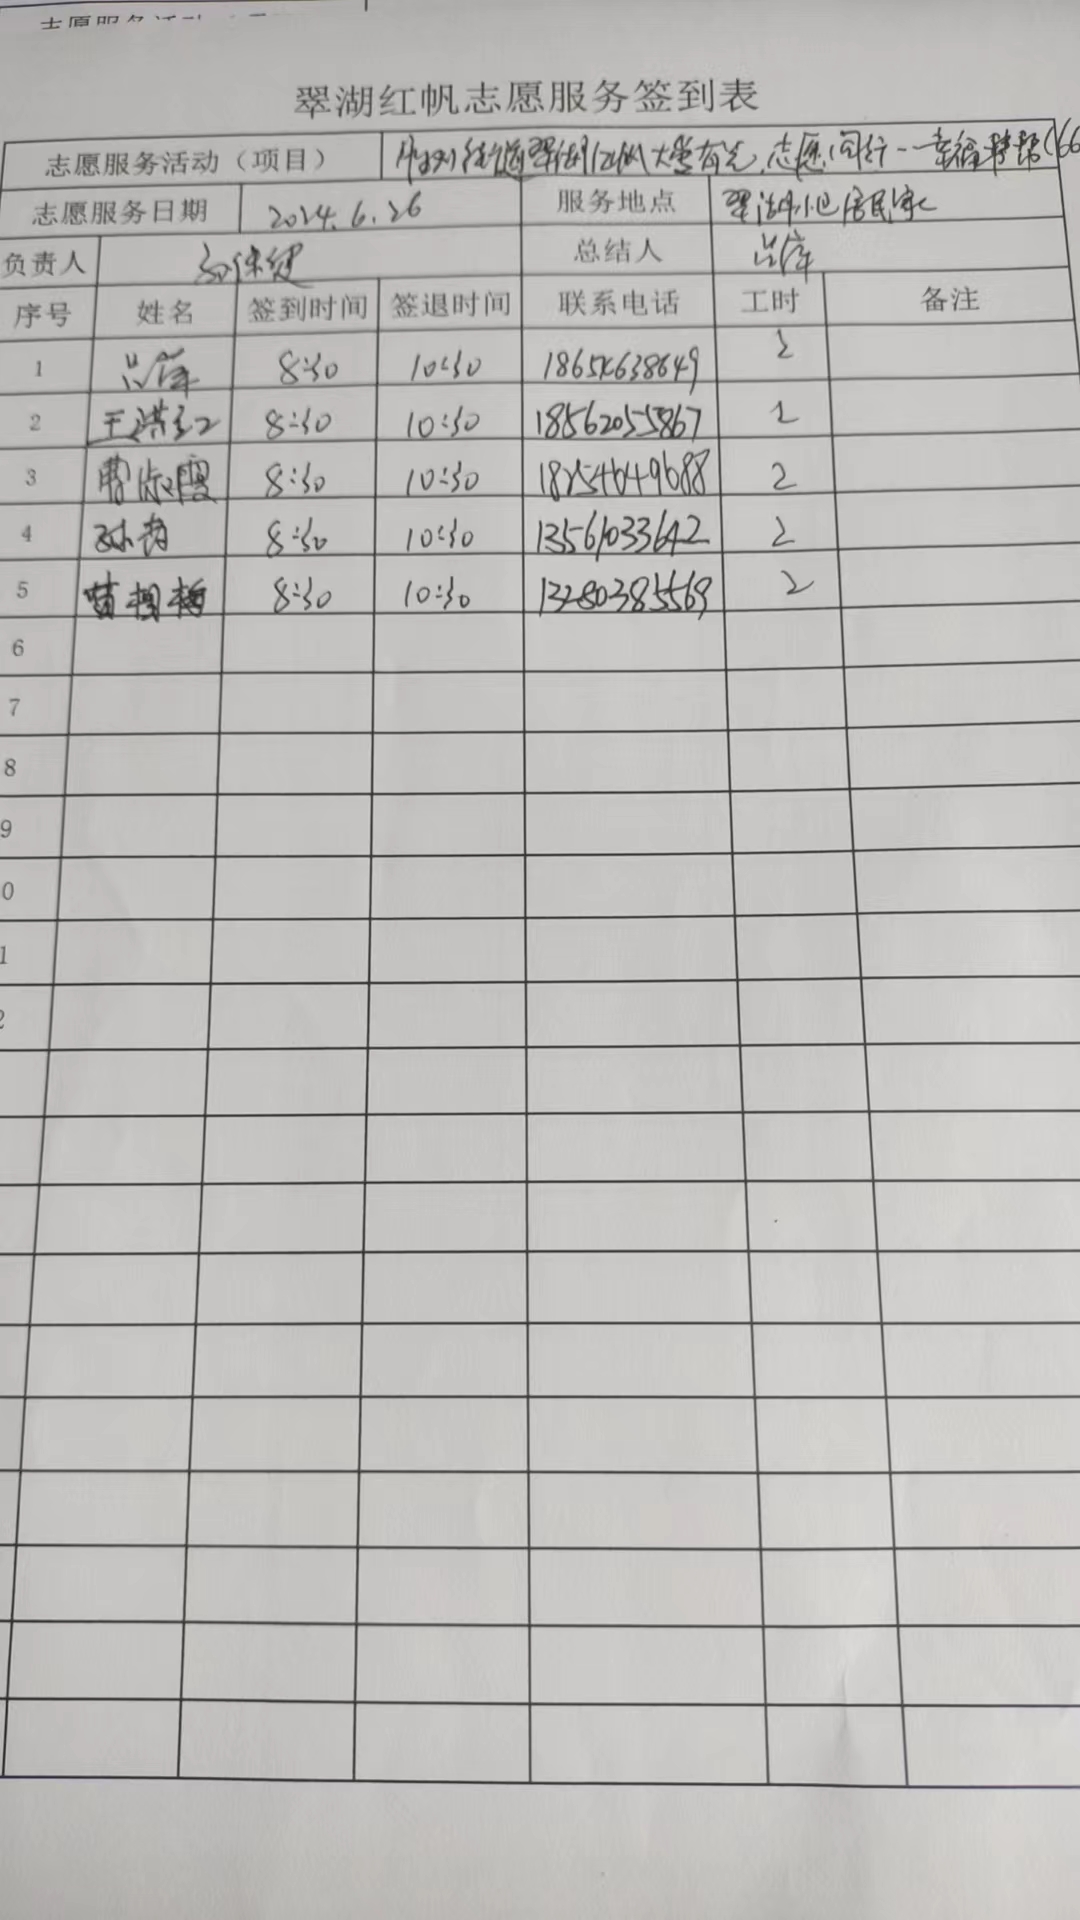 志愿服务活动
翠湖红帆志愿服务签到表
志愿服务活动（项目） 街道翠湖社区 志愿同行--幸福 (66
志愿服务日期 2024.6.26 服务地点 翠湖小区居民家
负责人 总结人 吕萍
序号 姓名 签到时间 签退时间 联系电话 工时 备注
1 吕萍 8:30 10:30 2
2 王洪 8:30 10:30 18562055867 2
3 曹淑霞 8:30 10:30 18254649688 2
4 孙 8:30 10:30 13561033642 2
5 苗 梅 8:30 10:30 13280385569 2
6
7
8
9
0
1
2